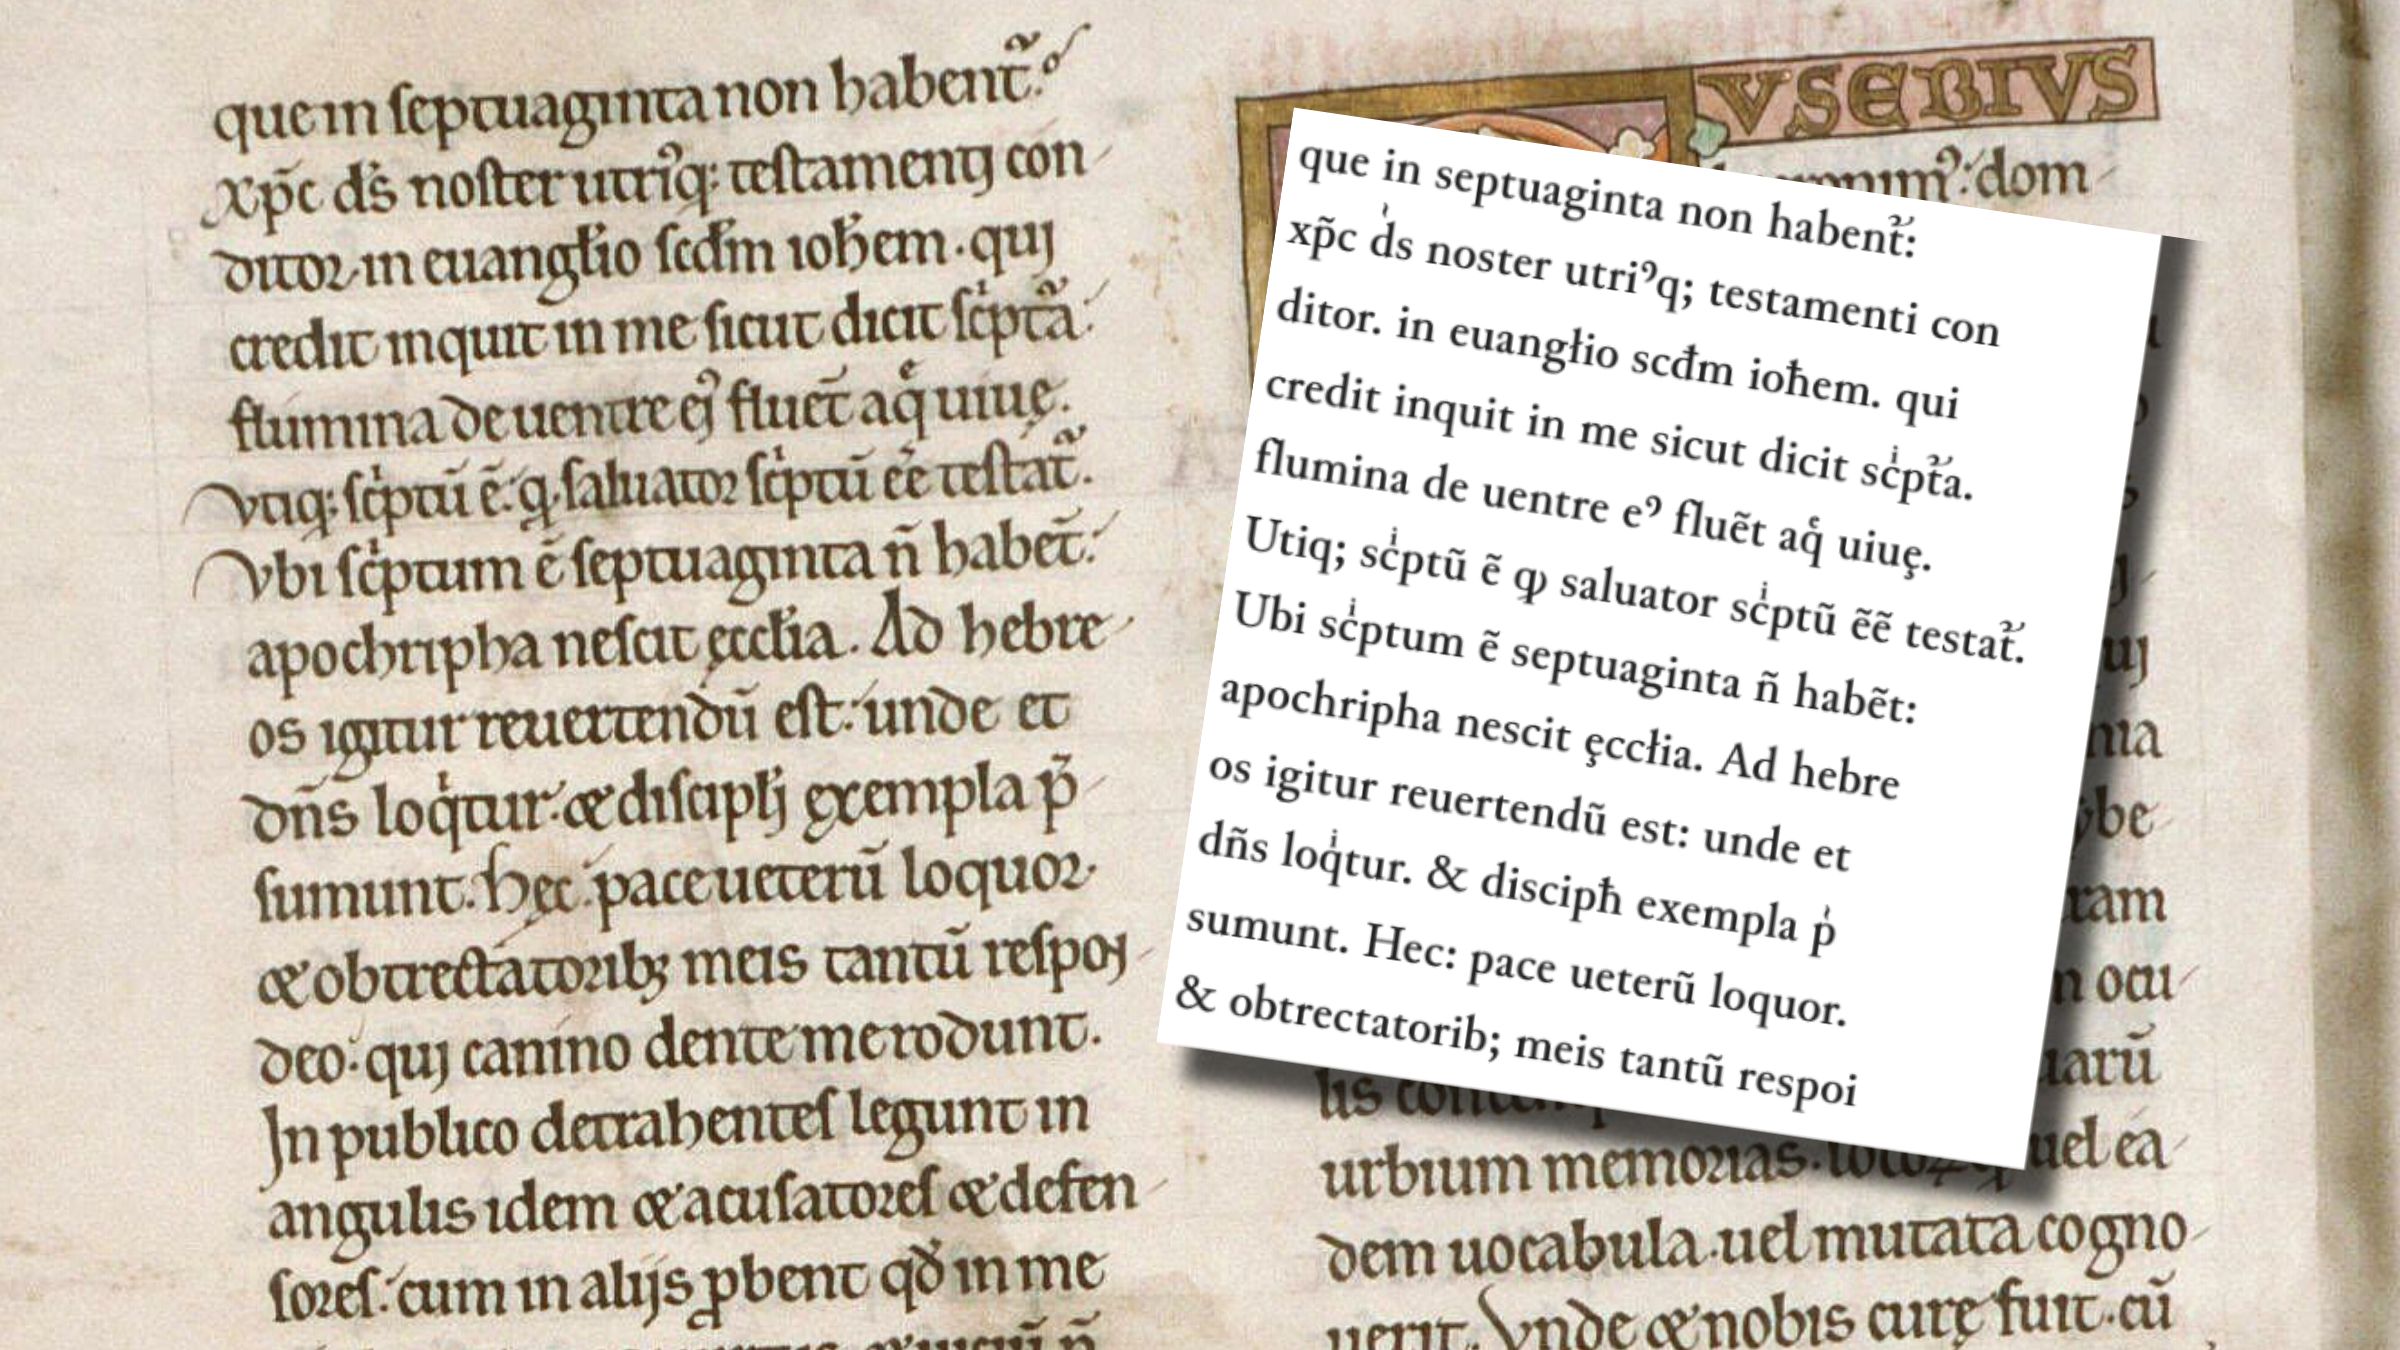 que in septuaginta non habent᷑:
xp̃c ds̓ noster utriꝰq; testamenti con
ditor. in euangƚio scđm ioħem. qui
credit inquit in me sicut dicit sc̍pt᷑a.
flumina de uentre eꝰ fluẽt aq̊ uiuę.
Vtiq; sc̍ptũ ẽ. ꝙ saluator sc̍ptũ eẽ testat᷑.
Vbi sc̍ptum ẽ septuaginta ñ habẽt:
apochripha nescit ęccƚia. Ad hebre
os igitur reuertendũ est: unde et
dñs loq̍tur. & discipłi ęxempla p̃
sumunt. Hęc: pace ueterũ loquor.
& obtrectatorib; meis tantũ respon
deo. qui canino dente me rodunt.
In publico detrahentes legunt in
angulis idem & acusatores & defen
sores. cum in alijs ꝓbent qđ in me
VSEBIVS
dom
urbium memorias. uel ea
dem uocabula. uel mutata cogno
uerit. Vnde & nobis curę fuit. cũ
que in septuaginta non habent᷑:
xp̃c d̓s noster utriꝰq; testamenti con
ditor. in euangƚio scđm ioħem. qui
credit inquit in me sicut dicit scͥpt᷑a.
flumina de uentre eꝰ fluẽt aq̊ uiuę.
Utiq; scͥptũ ẽ ꝙ saluator scͥptũ ẽẽ testat᷑.
Ubi scͥptum ẽ septuaginta ñ habẽt:
apochripha nescit ęccƚia. Ad hebre
os igitur reuertendũ est: unde et
dñs loqͥtur. & discipħ exempla p̓
sumunt. Hec: pace ueterũ loquor.
& obtrectatorib; meis tantũ respoi